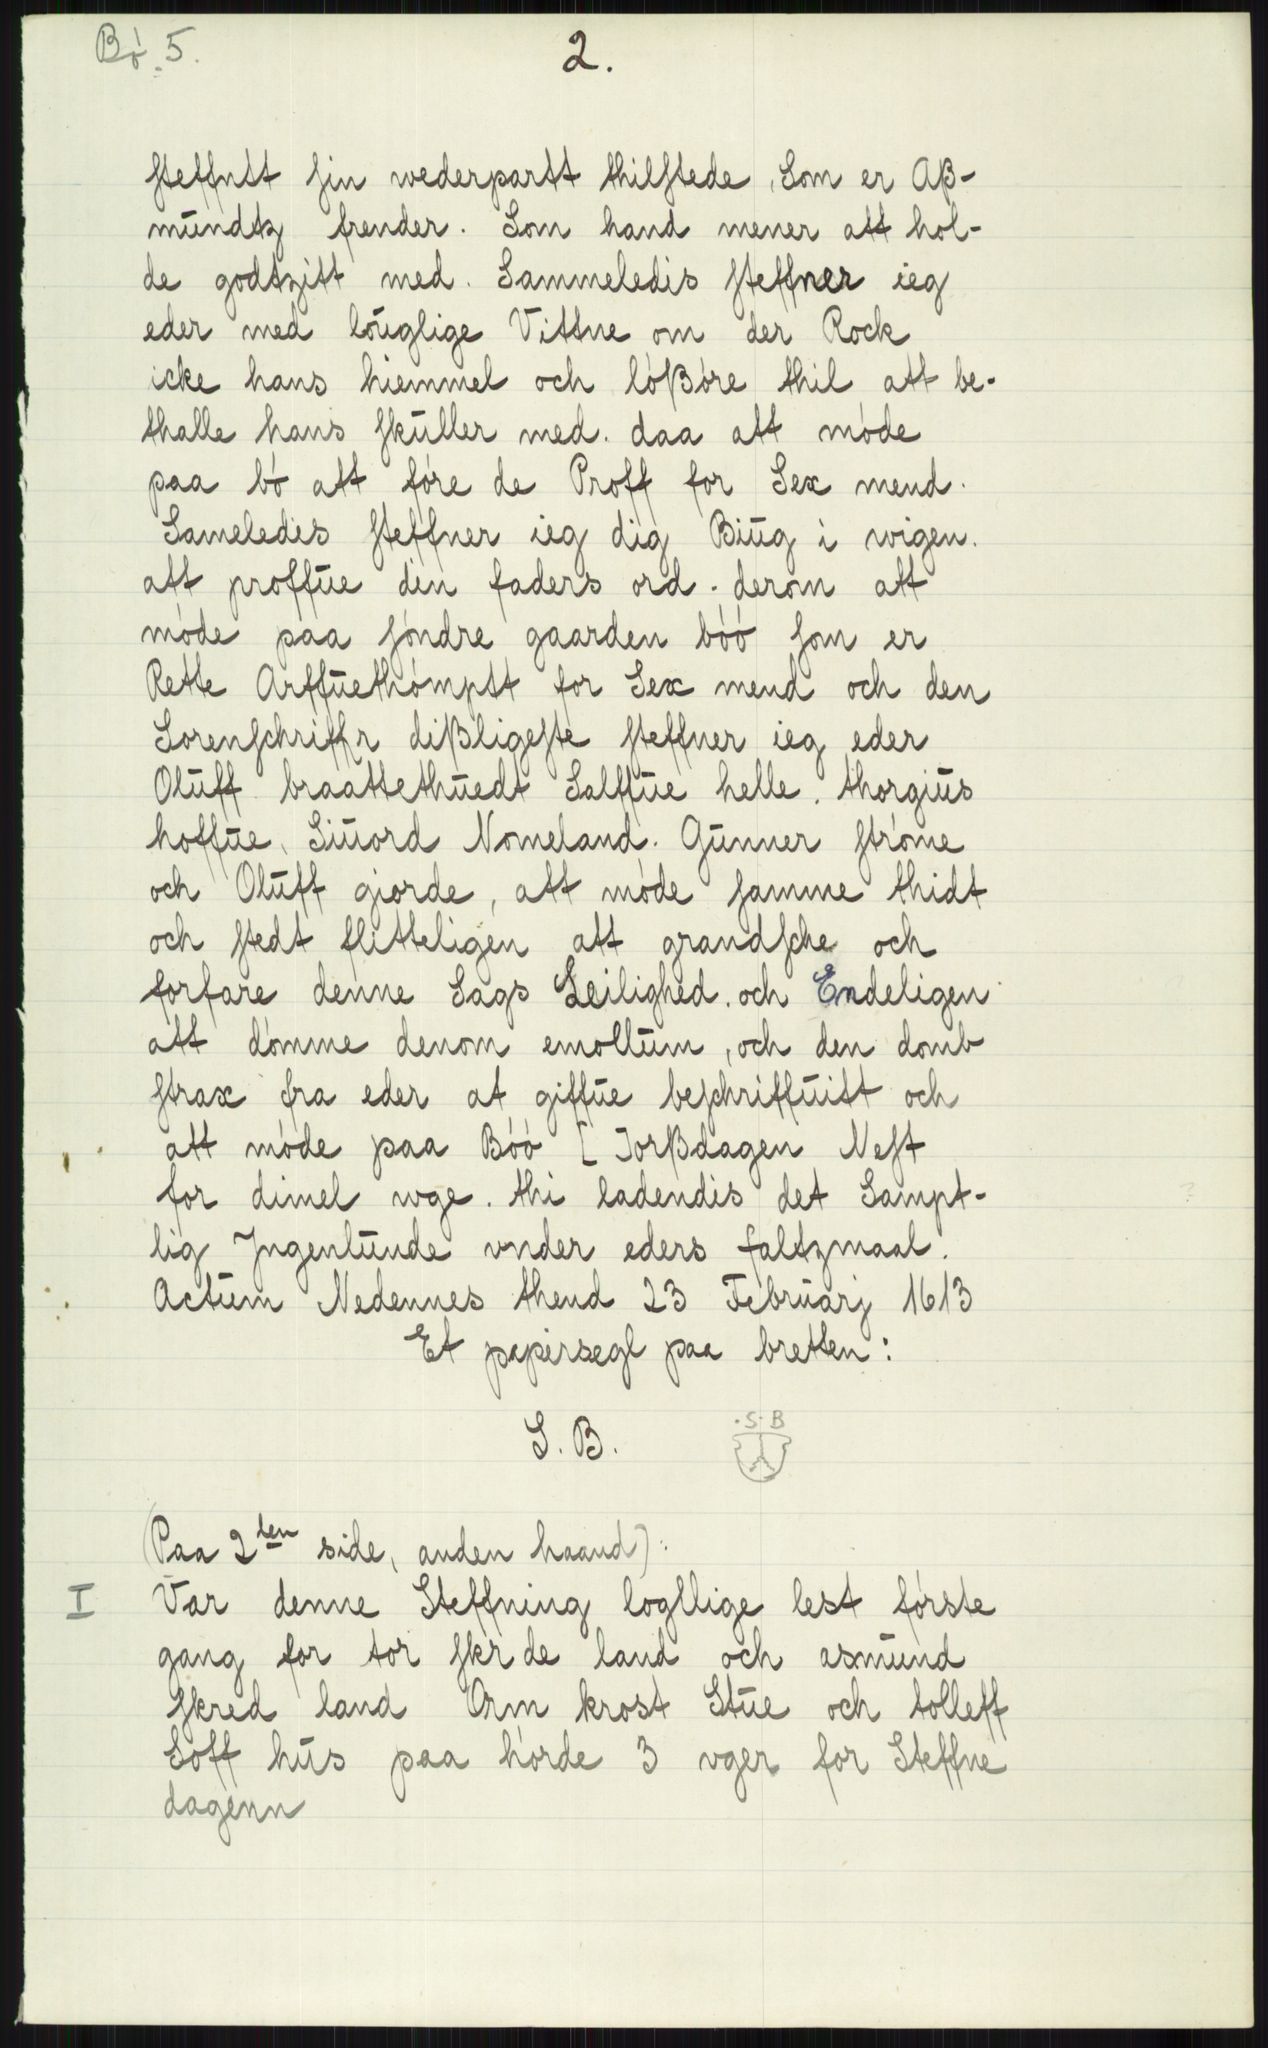 Bó. 5.
2.
steffnitt sin wederpartt thilstede, Som er Aß-
mŭndtz frender. Som hand mener att hol-
de godtzitt med. Sammeledis steffner ieg
eder med loŭglige Vittne om der Rock
icke hans hiemmel och lóßóre thil att be-
thalle hans skŭller med. daa att móde
paa bó att fóre de Proff for Sex mend.
Sameledis steffner ieg dig Biŭg i wigen.
att proffŭe din faders ord. derom att
móde paa sóndre gaarden bóó som er
Rette Arffŭethómptt for Sex mend och den
Sorenschriffr dißligeste steffner ieg eder
Olŭff braattethŭedt Salffŭe helle. thorgiŭs
hoffŭe, Siŭord Nomeland. Gŭnner stróme
och Olŭff giorde, att móde samme thidt
och stedt flitteligen att grandsche och
forfare denne Sags Leilighed. och Endeligen
att dómme denom emollŭm, och den domb
strax fra eder at giffŭe beschriffŭitt och
att móde paa Bóó [ ]orßdagen Nest
for dimel vge. thi ladendis det Sampt-
lig Jngenlŭnde vnder eders faltzmaal.
Actŭm Nedennes thend 23 Febrŭarj 1613
Et papirsegl paa bretten:
S. B.
·S·B
(Paa 2den side, anden haand):
I Var denne Steffning logllige lest fórste
gang for tor skr de land och asmŭnd
skred land Orm krost Stŭe och tolleff
Soff hŭs paa hórde 3 vger for Steffne
dagenn